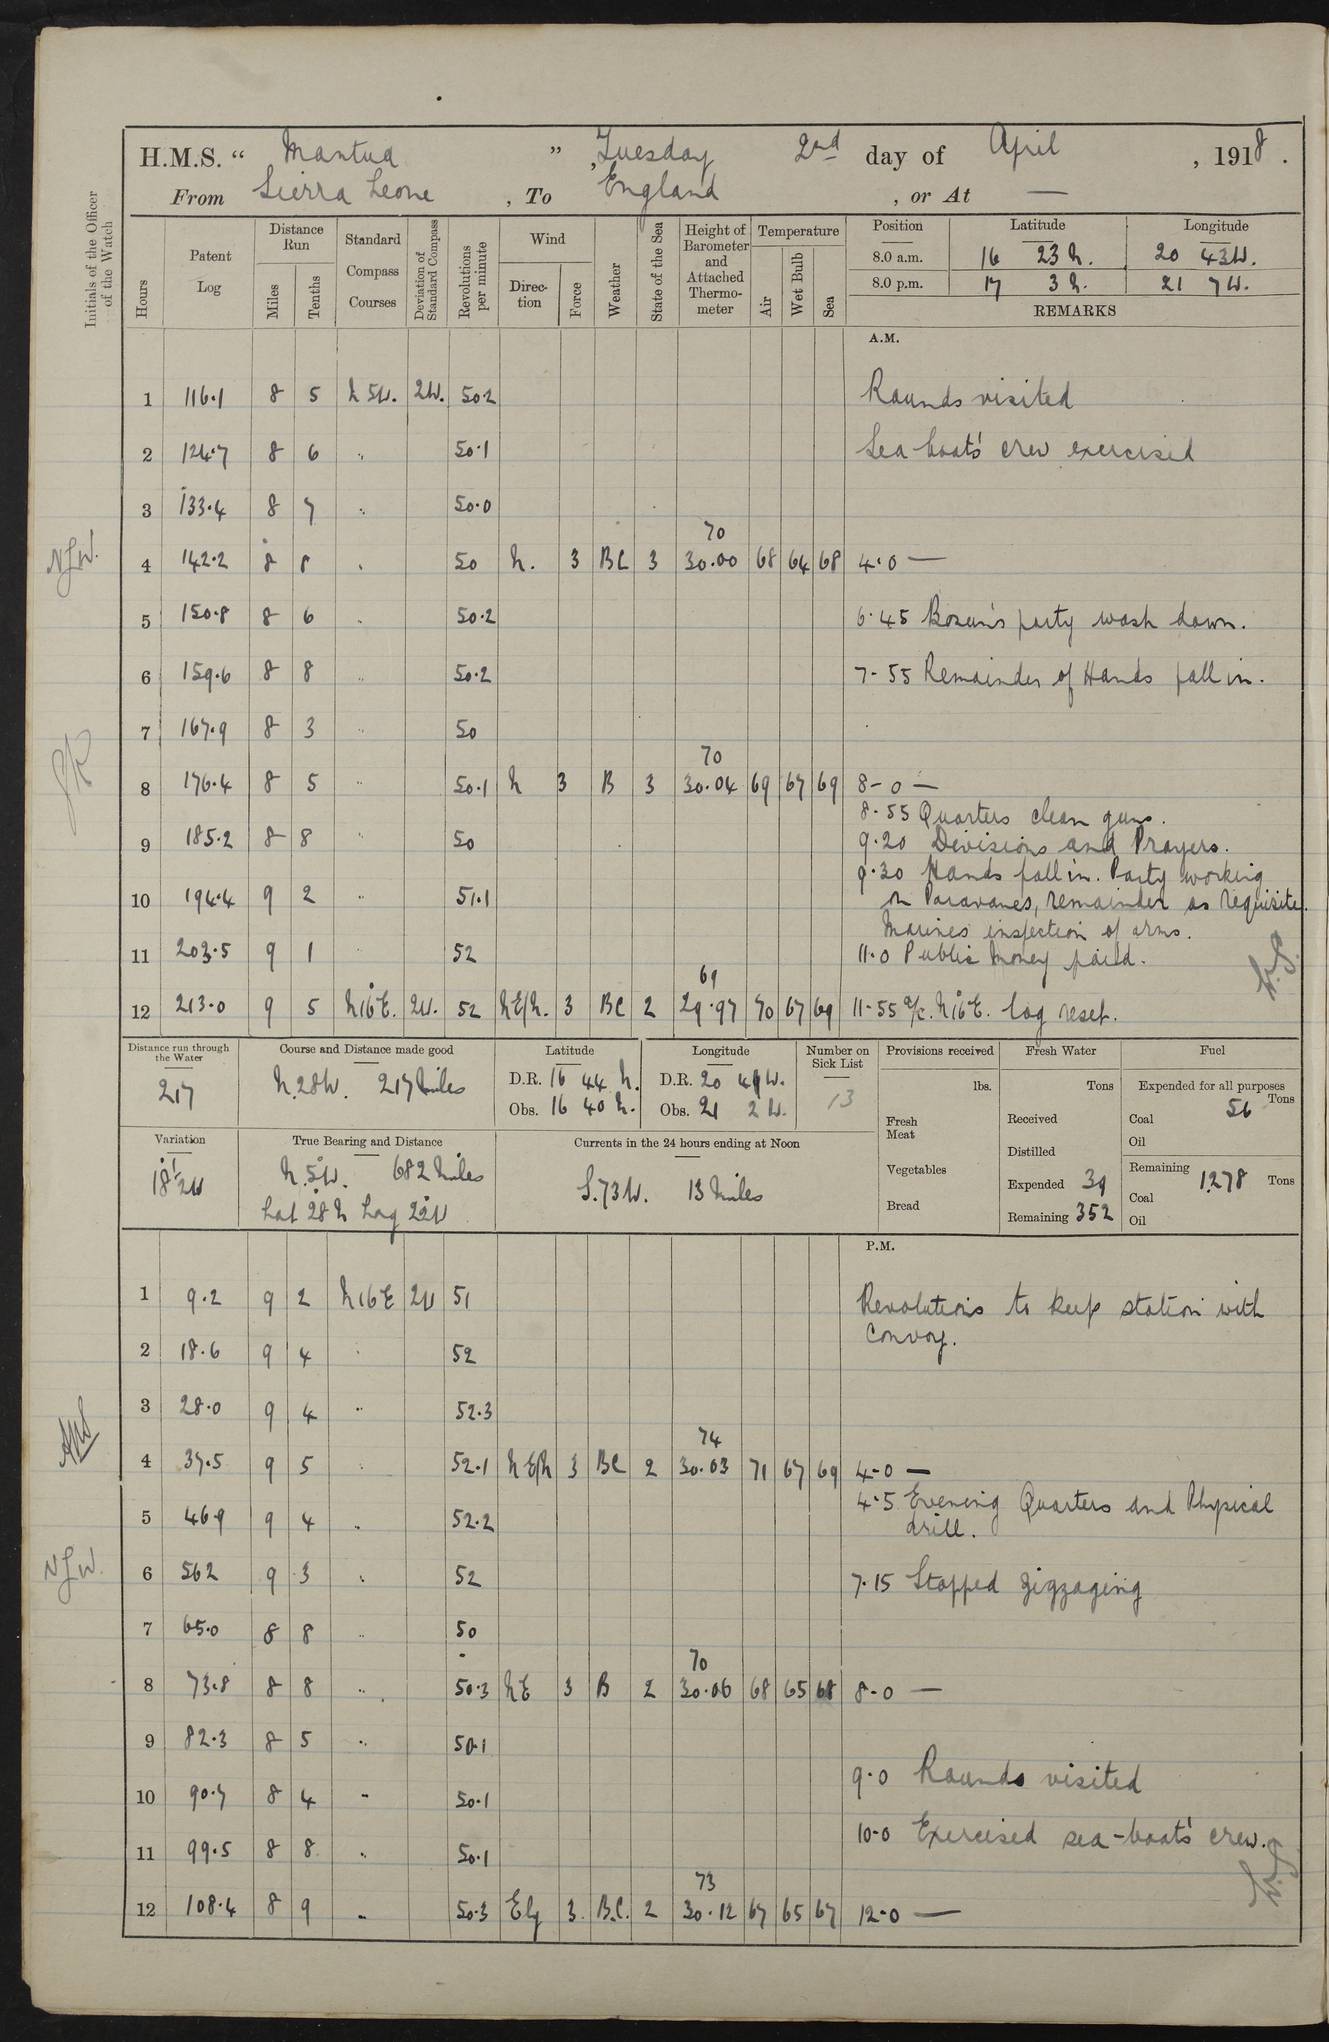 H.M.S. " Mantua " , Tuesday 2nd day of April , 1918 .
From Sierra Leone , To England , or At —
Initials of the Officer of the Watch
Hours
Patent Log
Distance Run
Miles
Tenths
Standard Compass Courses
Deviation of Standard Compass
Revolutions per minute
Wind
Direction
Force
Weather
State of the Sea
Height of Barometer and Attached Thermometer
Temperature
Air
Wet Bulb
Sea
Position Latitude Longitude
8.0 a.m. 16 23 N. 20 43 W.
8.0 p.m. 17 3 N. 21 7 W.
REMARKS
A.M.
1 116.1 8 5 N 5 W. 2W. 50.2 Rounds visited
2 124.7 8 6 " 50.1 Sea boats' crew exercised
3 133.4 8 7 " 50.0
70
N.J.W. 4 142.2 8 8 " 50 N. 3 BC 3 30.00 68 64 68 4.0 —
5 150.8 8 6 " 50.2 6.45 Bosun's party wash down.
6 159.6 8 8 " 50.2 7-55 Remainder of Hands fall in.
7 167.9 8 3 " 50
70
8 176.4 8 5 " 50.1 N 3 B 3 30.04 69 67 69 8-0 —
8.55 Quarters clean guns.
9 185.2 8 8 " 50 9.20 Divisions and Prayers.
9.30 Hands fall in. Party working
10 194.4 9 2 " 51.1 on Paravanes, remainder as requisite.
Marines inspection of arms.
11 203.5 9 1 52 11.0 Public Money paid.
69
12 213.0 9 5 N16°E. 2W. 52 NE/N. 3 BC 2 29.97 70 67 69 11-55 a/c. N16°E. log reset.
Distance run through the Water
217
Course and Distance made good
N.28W. 217 Miles
Latitude
D.R. 16 44 N.
Obs. 16 40 N.
Longitude
D.R. 20 49 W.
Obs. 21 2 W.
Number on Sick List
13
Provisions received
lbs.
Fresh Meat
Vegetables
Bread
Fresh Water
Tons
Received
Distilled
Expended 39
Remaining 352
Fuel
Expended for all purposes
Tons
Coal 56
Oil
Remaining
Coal 1278 Tons
Oil
Variation
18 1/2 W
True Bearing and Distance
N.5°W. 682 Miles
Lat 28° N Long 22° W
Currents in the 24 hours ending at Noon
S.73W. 13 Miles
P.M.
1 9.2 9 2 N16E 2W 51 Revolutions to keep station with
convoy.
2 18.6 9 4 " 52
3 28.0 9 4 " 52.3
74
4 37.5 9 5 " 52.1 NE/N 3 BC 2 30.03 71 67 69 4-0 —
4.5 Evening Quarters and Physical
drill.
5 46.9 9 4 " 52.2
N.J.W. 6 56.2 9 3 " 52 7.15 Stopped zigzaging
7 65.0 8 8 " 50
70
8 73.8 8 8 " 50.3 NE 3 B 2 30.06 68 65 68 8-0 —
9 82.3 8 5 " 50.1
9.0 Rounds visited
10 90.7 8 4 " 50.1
10-0 Exercised sea-boats' crew.
11 99.5 8 8 " 50.1
73
12 108.4 8 9 " 50.3 Ely 3 B.C. 2 30.12 67 65 67 12-0 —